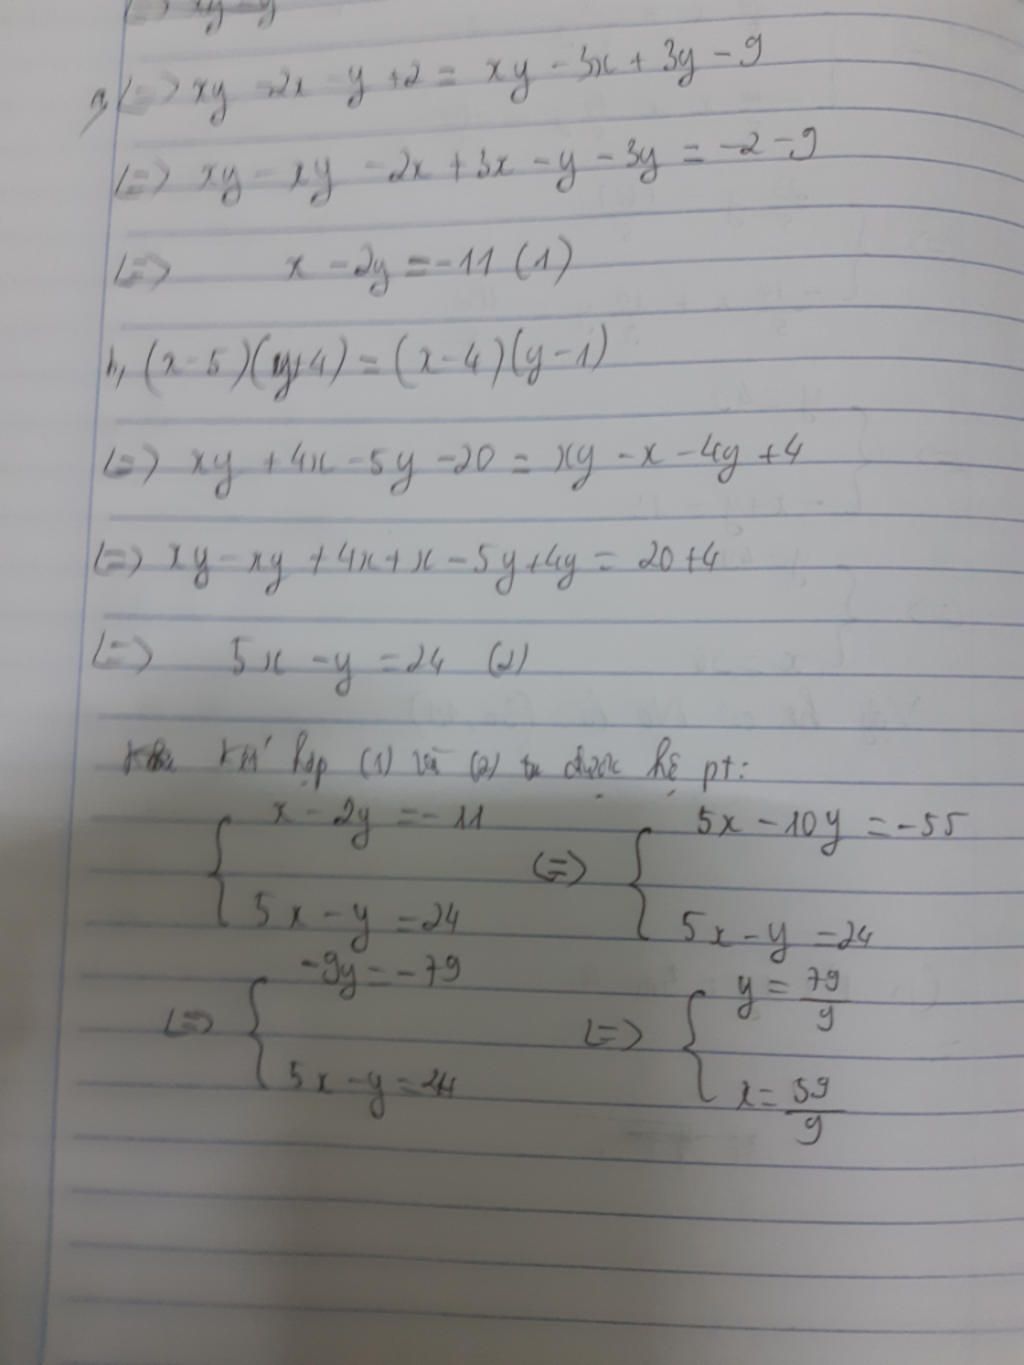 a, <=> xy - 2x - y + 2 = xy - 3x + 3y - 9
<=> xy - xy - 2x + 3x - y - 3y = -2 - 9
<=> x - 2y = -11 (1)
b, (x - 5)(y + 4) = (x - 4)(y - 1)
<=> xy + 4x - 5y - 20 = xy - x - 4y + 4
<=> xy - xy + 4x + x - 5y + 4y = 20 + 4
<=> 5x - y = 24 (2)
Kết hợp (1) và (2) ta được hệ pt:
{ x - 2y = -11 <=> { 5x - 10y = -55
5x - y = 24 5x - y = 24
<=> { -9y = -79 <=> { y = 79/9
5x - y = 24 x = 59/9